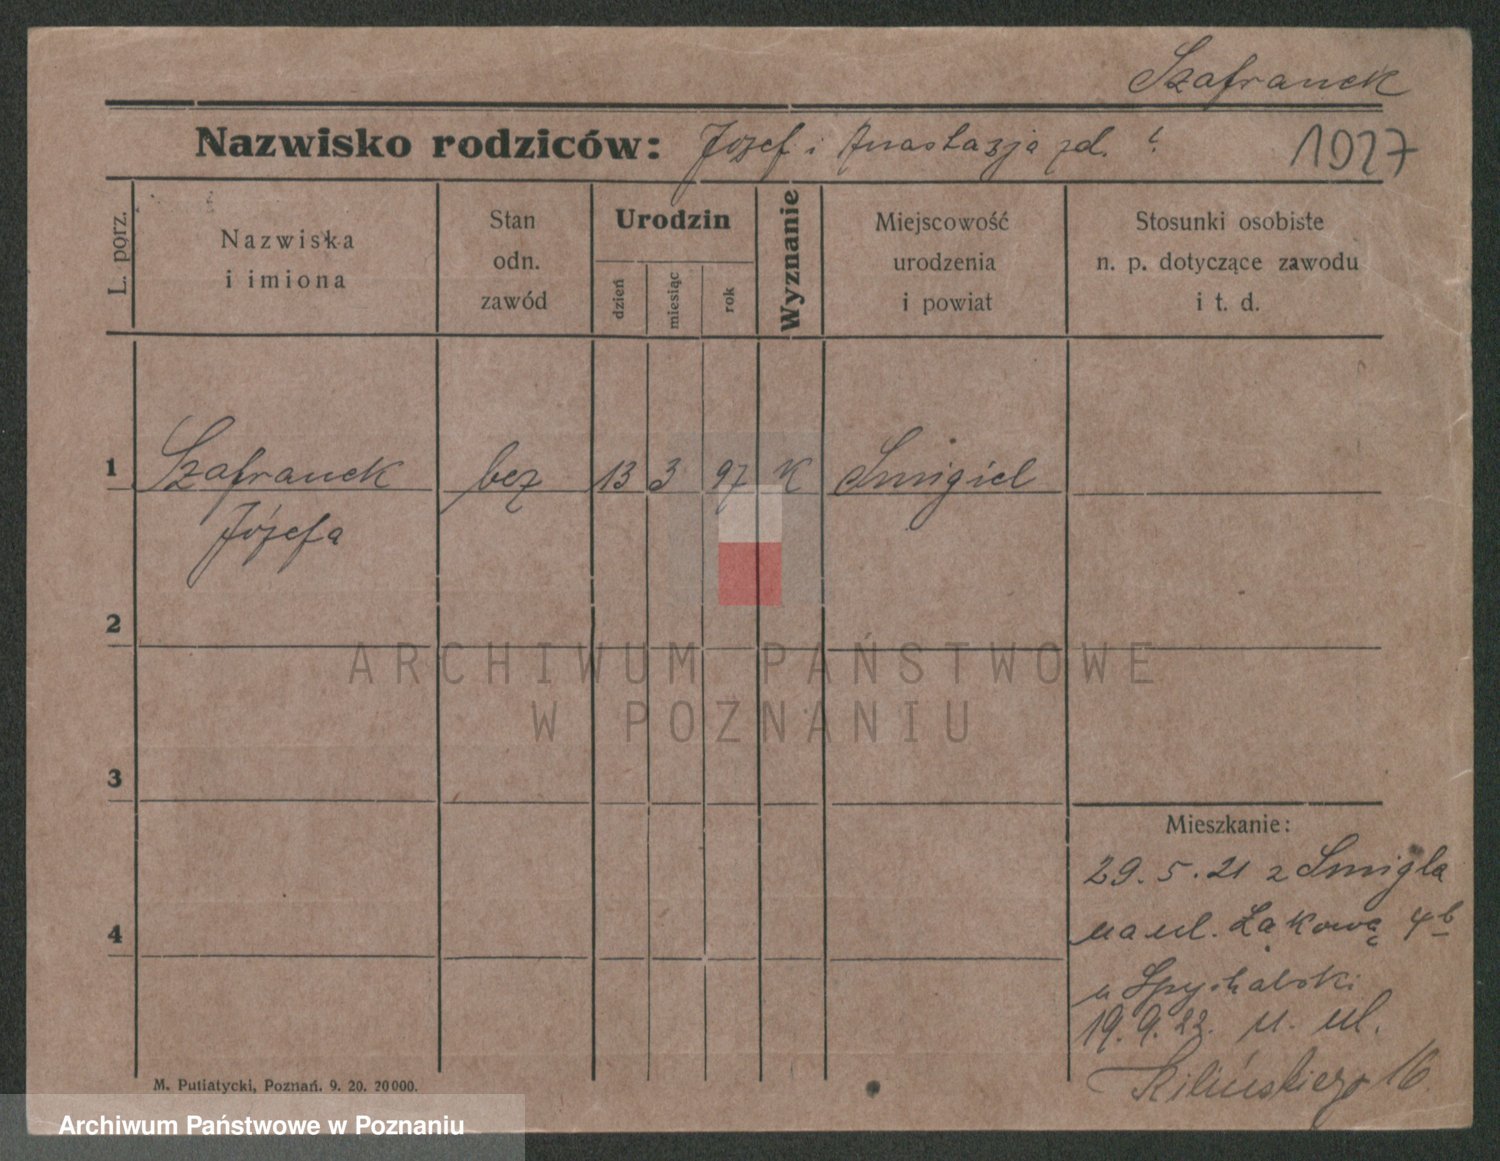 Szafranek
Nazwisko rodziców: Józef i Anastazja zd. ?
1927
L. porz.
Nazwiska
i imiona
Stan
odn.
zawód
Urodzin
dzień
miesiąc
rok
Wyznanie
Miejscowość
urodzenia
i powiat
Stosunki osobiste
n. p. dotyczące zawodu
i t. d.
1 Szafranek bez 13 3 97 K Smigiel
Józefa
2
ARCHIWUM PAŃSTWOWE
W POZNANIU
3
Mieszkanie:
29.5.21 z Smigla
4
na ul. Łąkową 4b
u Spychalski
19.9.22. n. ul.
Kilińskiego 16.
M. Putiatycki, Poznań. 9. 20. 20000.
Archiwum Państwowe w Poznaniu